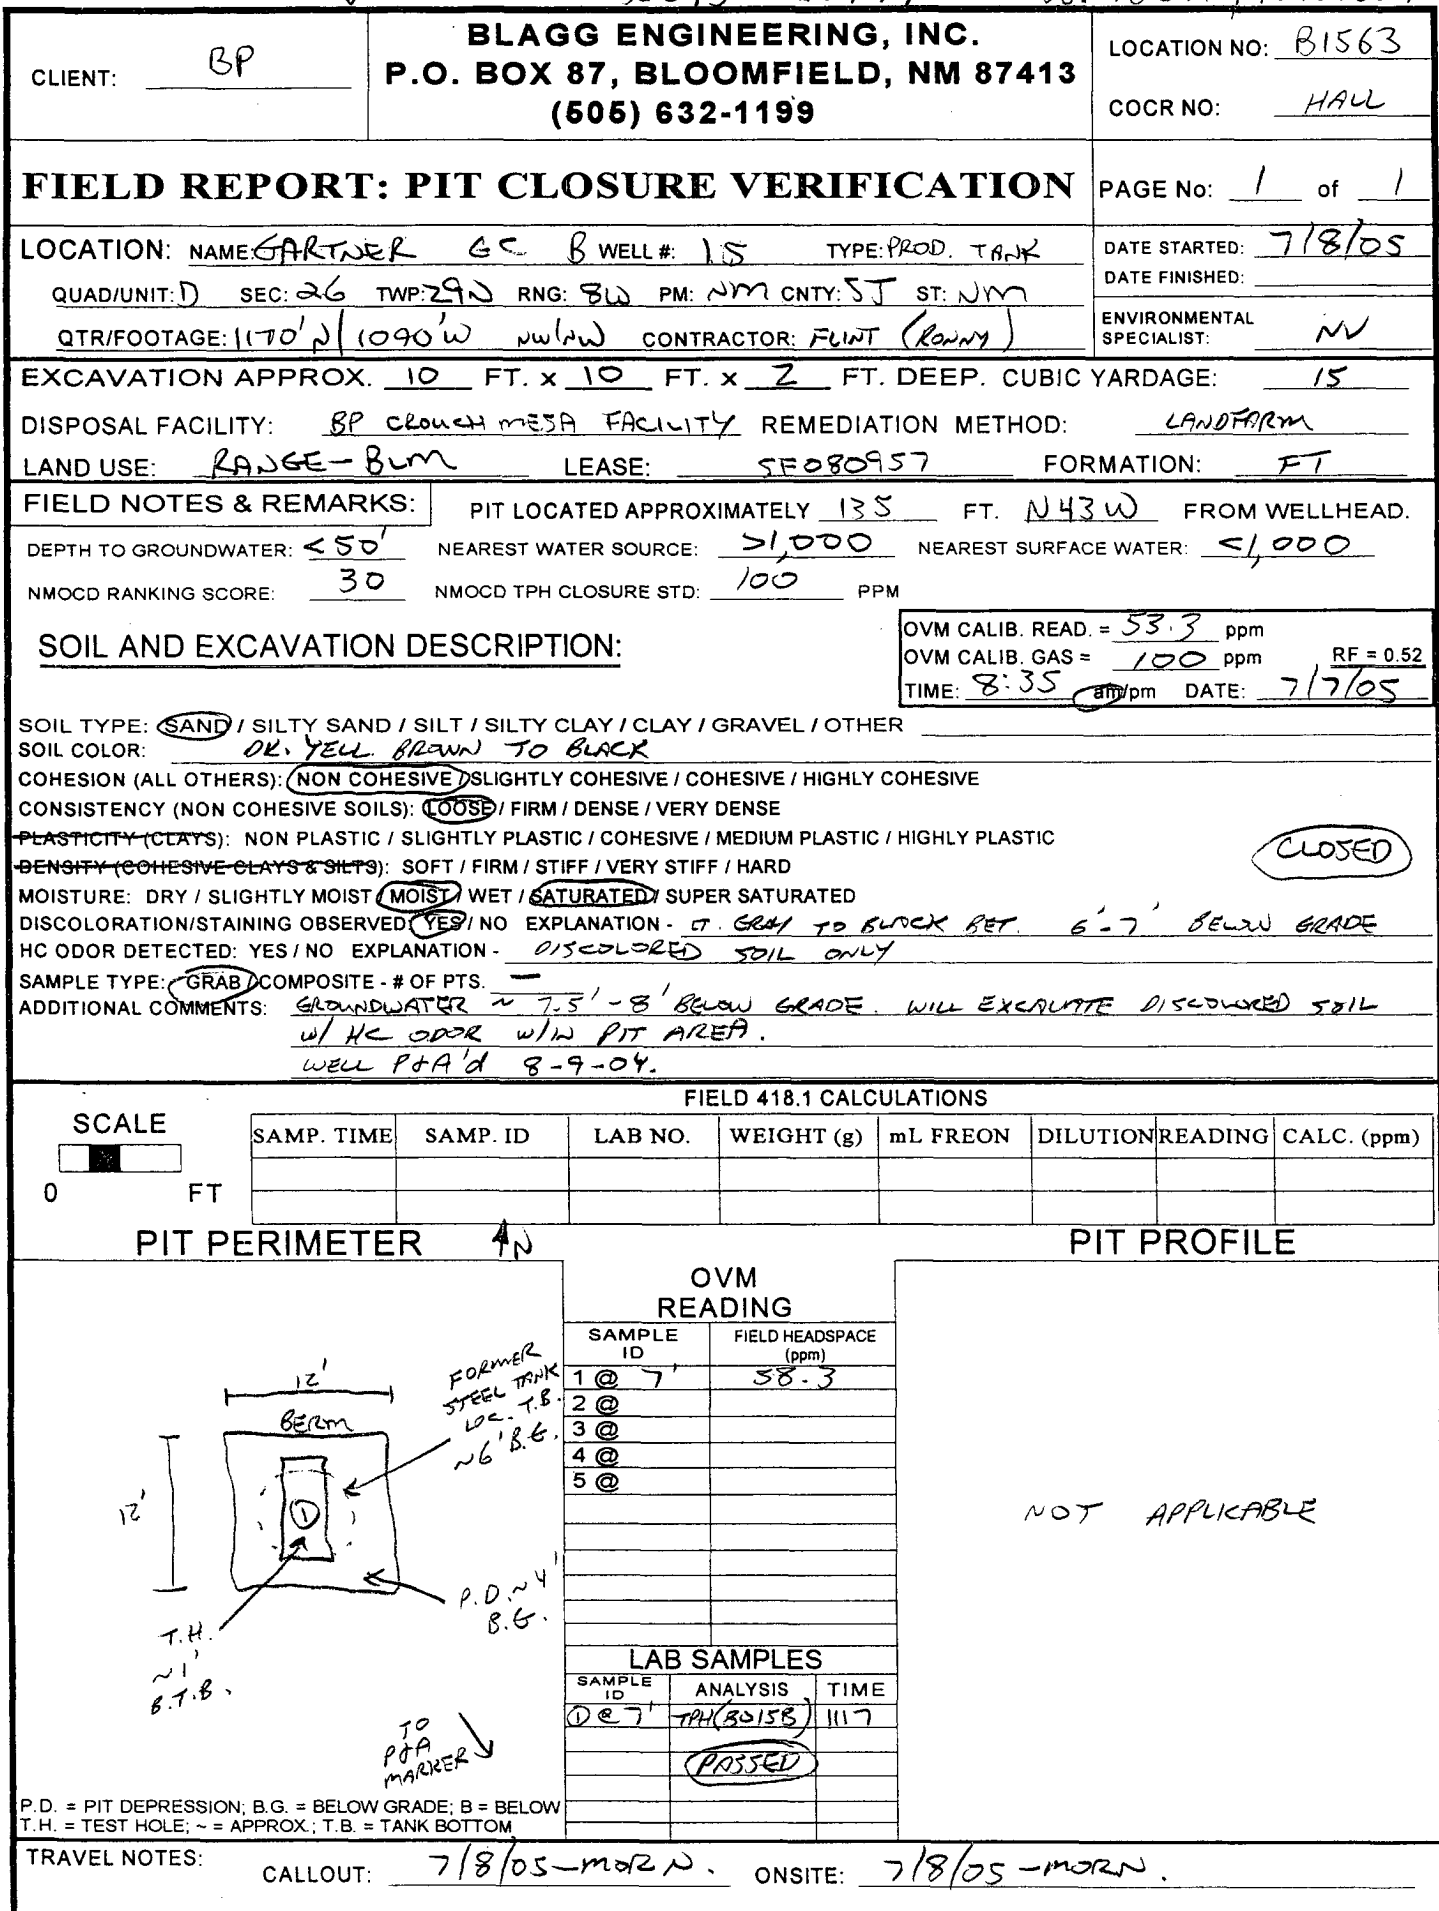 BLAGG ENGINEERING, INC.
P.O. BOX 87, BLOOMFIELD, NM 87413
(505) 632-1199
CLIENT: BP
LOCATION NO: B1563
COCR NO: HALL
FIELD REPORT: PIT CLOSURE VERIFICATION
PAGE No: 1 of 1
LOCATION: NAME: GARTNER GC B WELL #: 1S TYPE: PROD. TANK
QUAD/UNIT: D SEC: 26 TWP: 29N RNG: 8W PM: NM CNTY: SJ ST: NM
QTR/FOOTAGE: 1170'N/1090'W NW/NW CONTRACTOR: FLINT (RONNY)
DATE STARTED: 7/8/05
DATE FINISHED:
ENVIRONMENTAL SPECIALIST: NV
EXCAVATION APPROX. 10 FT. x 10 FT. x 2 FT. DEEP. CUBIC YARDAGE: 15
DISPOSAL FACILITY: BP CROUCH MESA FACILITY REMEDIATION METHOD: LANDFARM
LAND USE: RANGE-BLM LEASE: SF080957 FORMATION: FT
FIELD NOTES & REMARKS: PIT LOCATED APPROXIMATELY 135 FT. N43W FROM WELLHEAD.
DEPTH TO GROUNDWATER: <50' NEAREST WATER SOURCE: >1,000 NEAREST SURFACE WATER: <1,000
NMOCD RANKING SCORE: 30 NMOCD TPH CLOSURE STD: 100 PPM
SOIL AND EXCAVATION DESCRIPTION:
OVM CALIB. READ. = 53.3 ppm
OVM CALIB. GAS = 100 ppm RF = 0.52
TIME: 8:35 am/pm DATE: 7/7/05
SOIL TYPE: SAND / SILTY SAND / SILT / SILTY CLAY / CLAY / GRAVEL / OTHER
SOIL COLOR: DK. YELL. BROWN TO BLACK
COHESION (ALL OTHERS): NON COHESIVE / SLIGHTLY COHESIVE / COHESIVE / HIGHLY COHESIVE
CONSISTENCY (NON COHESIVE SOILS): LOOSE / FIRM / DENSE / VERY DENSE
PLASTICITY (CLAYS): NON PLASTIC / SLIGHTLY PLASTIC / COHESIVE / MEDIUM PLASTIC / HIGHLY PLASTIC
DENSITY (COHESIVE CLAYS & SILTS): SOFT / FIRM / STIFF / VERY STIFF / HARD
CLOSED
MOISTURE: DRY / SLIGHTLY MOIST / MOIST / WET / SATURATED / SUPER SATURATED
DISCOLORATION/STAINING OBSERVED: YES / NO EXPLANATION - LT. GRAY TO BLACK BET. 6'-7' BELOW GRADE
HC ODOR DETECTED: YES / NO EXPLANATION - DISCOLORED SOIL ONLY
SAMPLE TYPE: GRAB / COMPOSITE - # OF PTS. —
ADDITIONAL COMMENTS: GROUNDWATER ~ 7.5'-8' BELOW GRADE. WILL EXCAVATE DISCOLORED SOIL
W/ HC ODOR W/IN PIT AREA.
WELL P&A'd 8-9-04.
FIELD 418.1 CALCULATIONS
SCALE
0 FT
SAMP. TIME SAMP. ID LAB NO. WEIGHT (g) mL FREON DILUTION READING CALC. (ppm)
PIT PERIMETER N
PIT PROFILE
OVM
READING
SAMPLE ID FIELD HEADSPACE (ppm)
1 @ 7' 58.3
2 @
3 @
4 @
5 @
12'
BERM
12'
1
FORMER
STEEL TANK
LOC. T.B.
~6' B.G.
P.D. ~4'
B.G.
T.H.
~1'
B.T.B.
TO
P&A
MARKER
NOT APPLICABLE
LAB SAMPLES
SAMPLE ID ANALYSIS TIME
① @ 7' TPH(8015B) 1117
PASSED
P.D. = PIT DEPRESSION; B.G. = BELOW GRADE; B = BELOW
T.H. = TEST HOLE; ~ = APPROX.; T.B. = TANK BOTTOM
TRAVEL NOTES: CALLOUT: 7/8/05-MORN. ONSITE: 7/8/05-MORN.